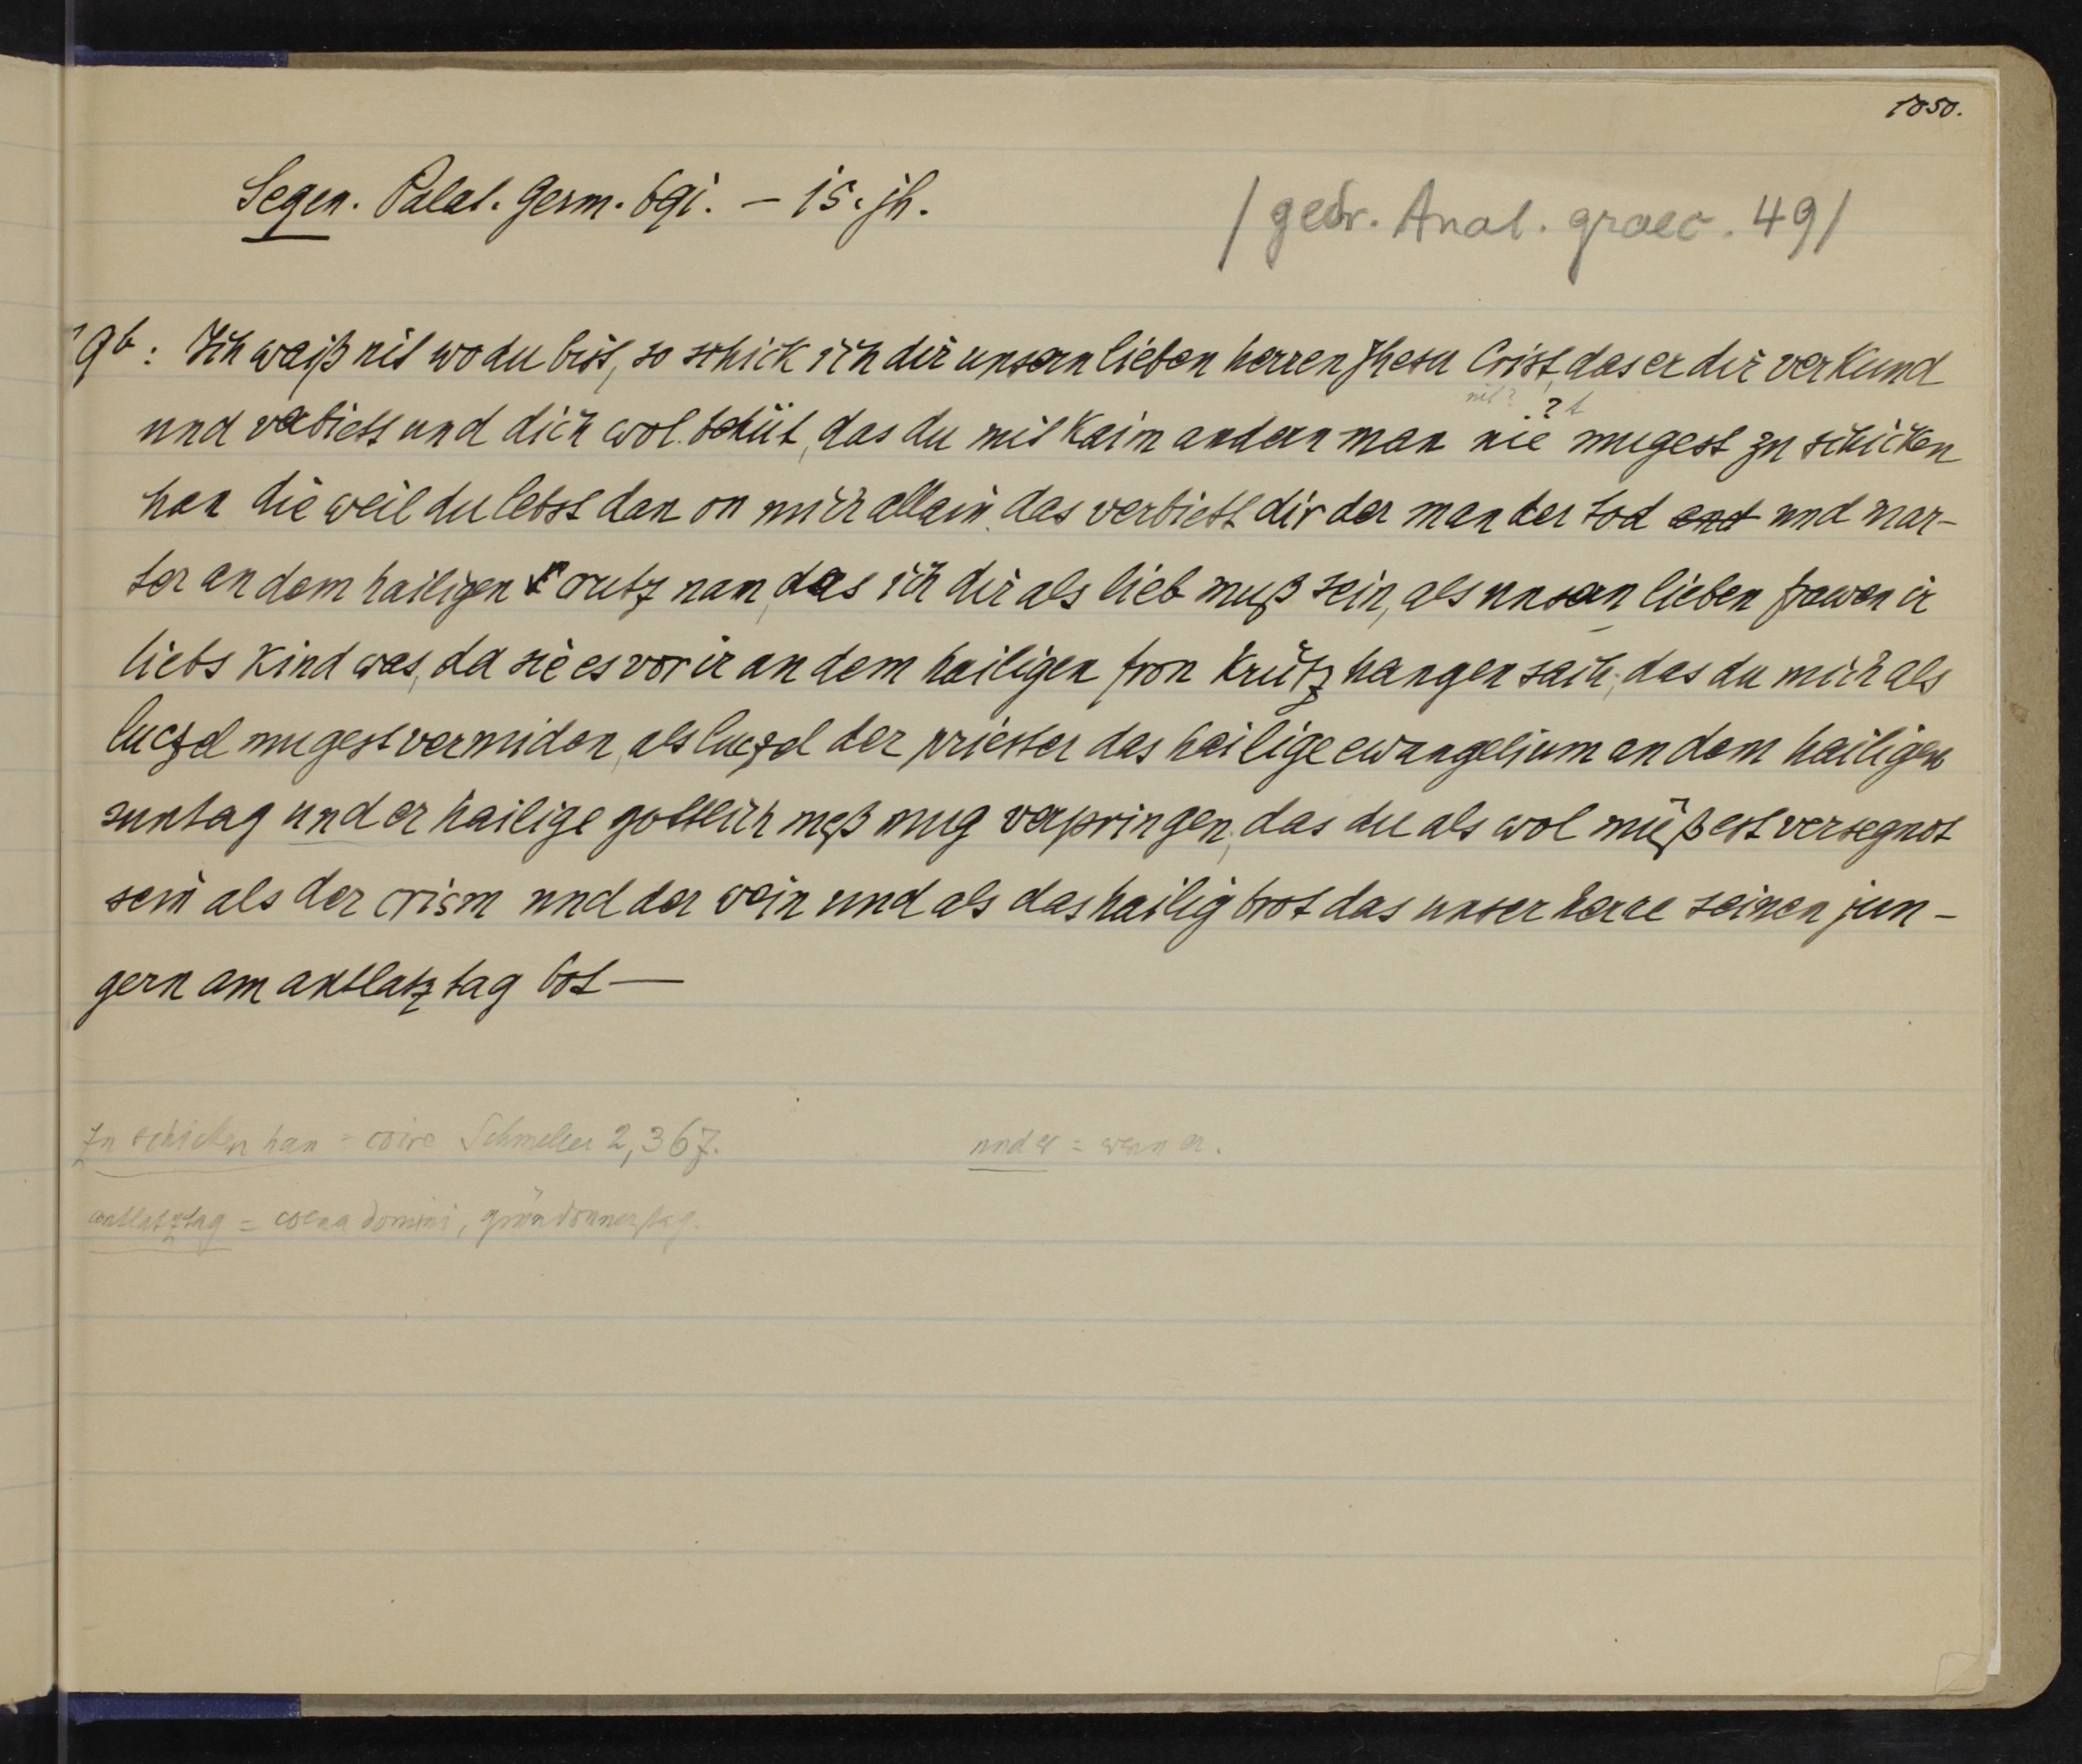 1050.
Segen. Palat. Germ. 691. – 15. jh.
/ gedr. Anal. graec. 49/
19b: Ich waiß nit wo du bist, so schick ich dir unsern lieben herren Jhesu Crist, das er dir verkund
nit? ? t
und verbiett und dich wol behüt, das du mit kaim andern man nie mugest zu schicken
han die weil du lebst dan on mich allain. das verbiett dir der man der tod and und mar-
ter an dem hailigen crutz nam, das ich dir als lieb muß sein, als unsern lieben frawen ir
liebs kind was, da sie es vor ir an dem hailigen fron krütz hangen sach; das du mich als
luczel mugest vermiden, als luczel der priester das hailige ewangelium an dem hailigen
suntag und er hailige gottlich meß mug verpringen; das du als wol müßest versegnot
sein als der crism und der wein und als das hailig brot das unser herre seinen jun-
gern am antlatztag bot —
zu schicken han = coire Schmeller 2,367.
und er = wenn er.
antlatztag = coena domini, gründonnerstag.